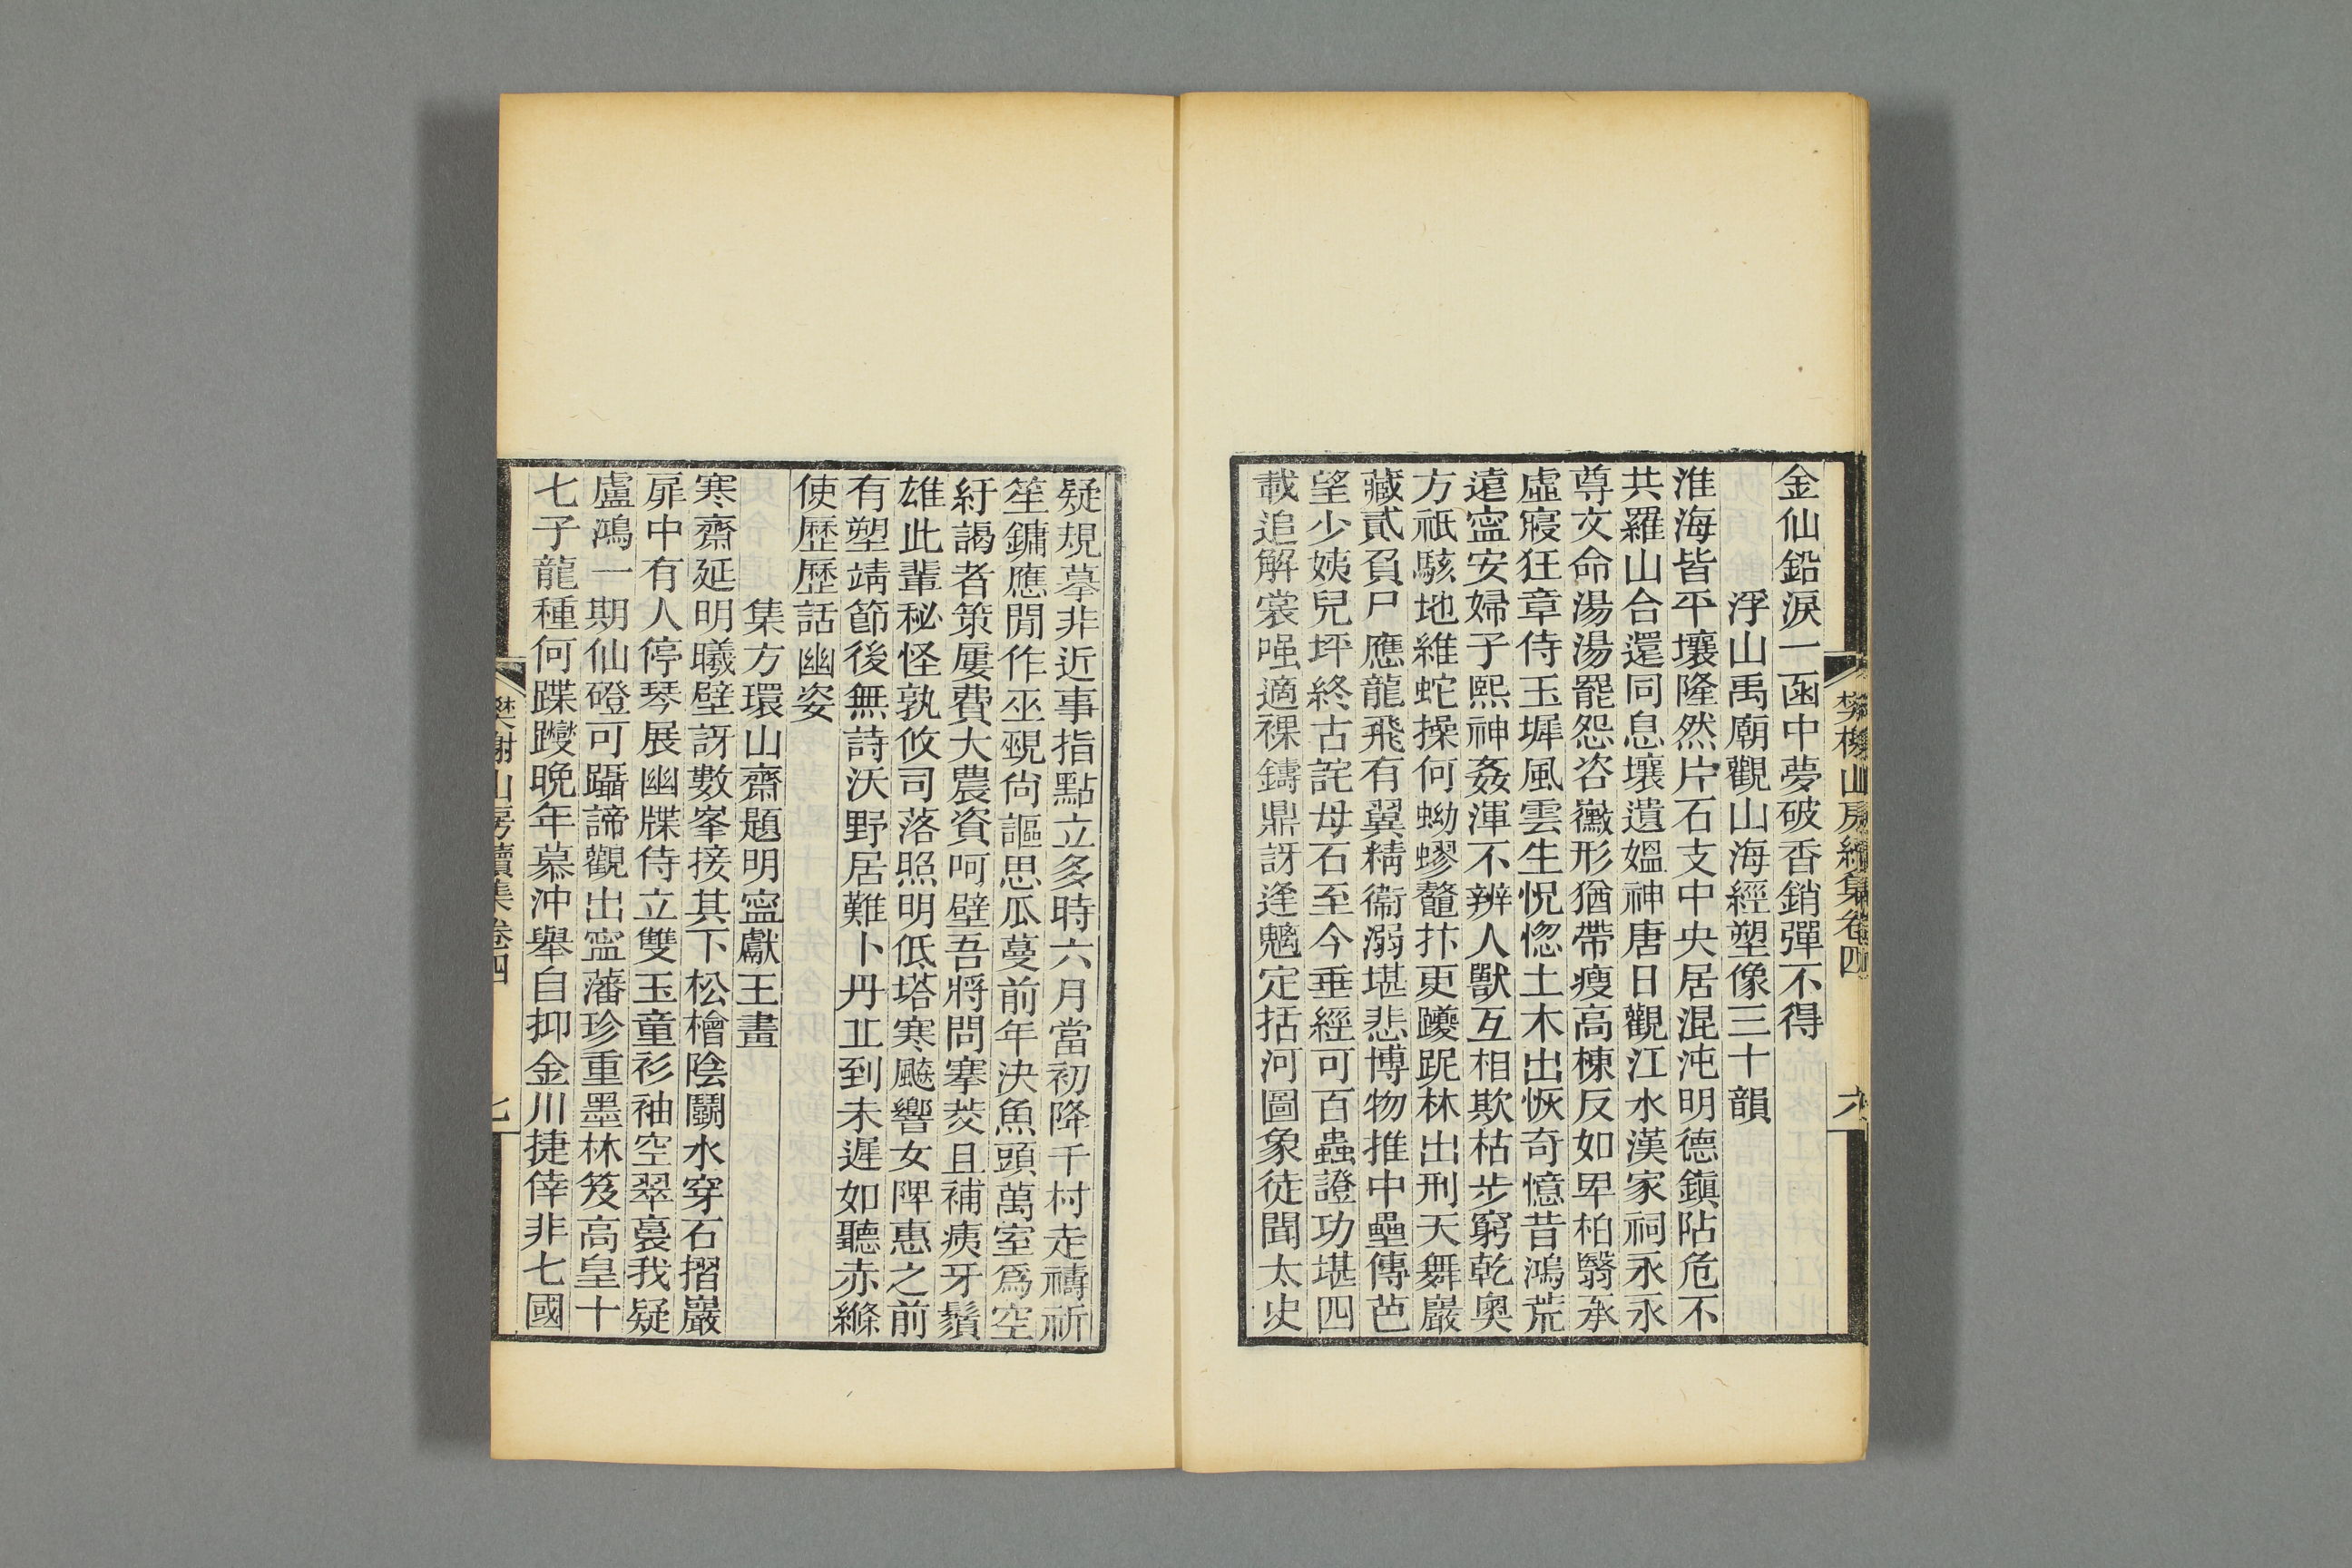 樊榭山房續集卷四
六
金仙鉛淚一函中夢破香銷彈不得
浮山禹廟觀山海經塑像三十韻
淮海皆平壤隆然片石支中央居混沌明德鎭阽危不
共羅山合還同息壤遺媼神唐日觀江水漢家祠永永
尊文命湯湯罷怨咨黴形猶帶瘦高棟反如卑柏翳承
虛寢狂章侍玉墀風雲生怳惚土木出恢奇憶昔鴻荒
遠寍安婦子熙神姦渾不辨人獸互相欺枯步窮乾奧
方祇駭地維蛇操何蚴蟉鼇抃更躨跜林出刑天舞巖
藏貳負尸應龍飛有翼精衞溺堪悲博物推中壘傳芭
望少姨兒坪終古詫母石至今垂經可百蟲證功堪四
載追解裳嗤適裸鑄鼎訝逢魑定括河圖象徒聞太史
疑規摹非近事指點立多時六月當初降千村走禱祈
笙鏞應閒作巫覡尙謳思瓜蔓前年決魚頭萬室爲空
紆謁者策屢費大農資呵壁吾將問搴茭且補痍牙鬚
雄此輩秘怪孰攸司落照明低塔寒飈響女陴惠之前
有塑靖節後無詩沃野居難卜丹丘到未遲如聽赤縧
使歷歷話幽姿
集方環山齋題明寍獻王畫
寒齋延明曦壁訝數峯接其下松檜陰鬭水穿石摺巖
扉中有人停琴展幽牒侍立雙玉童衫袖空翠裛我疑
盧鴻一期仙磴可躡諦觀出寍藩珍重墨林笈高皇十
七子龍種何蹀躞晚年慕沖舉自抑金川捷倖非七國
樊榭山房續集卷四
七